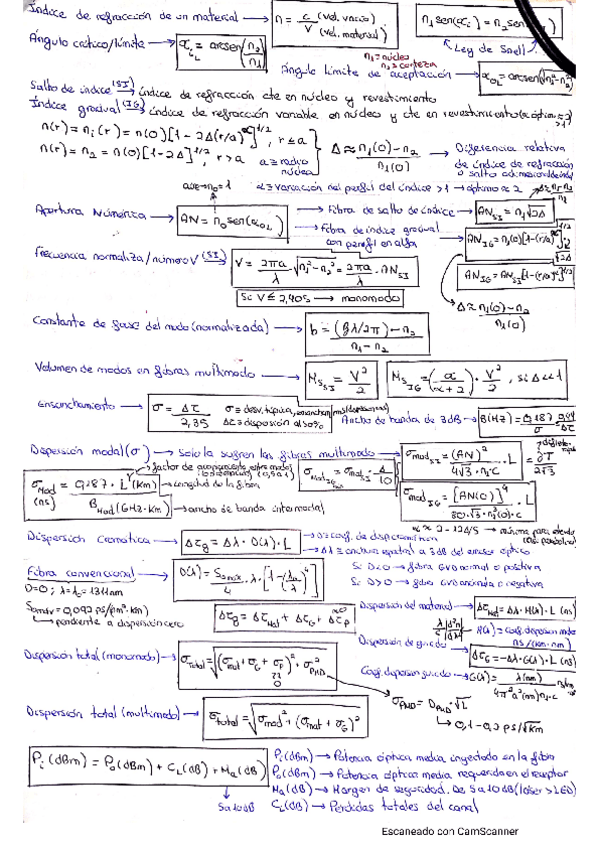 Índice de refracción de un material → n = c (vel. vacío) / V (vel. material)
n₁sen(αᵢ) = n₂sen(
Ley de Snell
Ángulo crítico/límite → α_cL = arcsen(n₂/n₁)
n₁ = núcleo
n₂ = corteza
Ángulo límite de aceptación → α_OL = arcsen√(n₁²-n₂²)
Salto de índice (SI) → índice de refracción cte en núcleo y revestimiento
Índice gradual (IG) → índice de refracción variable en núcleo y cte en revestimiento
n(r) = n₁(r) = n(0)[1-2Δ(r/a)^α]^1/2, r ≤ a
n(r) = n₂ = n(0)[1-2Δ]^1/2, r > a
a = radio núcleo
Δ ≈ (n₁(0)-n₂)/n₁(0) → Diferencia relativa
de índice de refracción
aire → n₀ = 1
α = variación del perfil del índice > 1 → óptimo ≈ 2
Apertura Numérica → AN = n₀sen(α_OL)
→ Fibra de salto de índice → AN_SI = n₁√2Δ
→ Fibra de índice gradual
con perfil en alfa
AN_IG = AN_SI[1-(r/a)^α]^1/2
Δ ≈ (n₁(0)-n₂)/n₁(0)
Frecuencia normaliza/número V (SI) → V = 2πa/λ · √(n₁²-n₂²) = 2πa/λ · AN_SI
Si V ≤ 2,405 → monomodo
Constante de fase del modo (normalizada) → b = ((βλ/2π)-n₂)/(n₁-n₂)
Volumen de modos en fibras multimodo → M_SI = V²/2
M_IG = (α/(α+2)) · V²/2, si Δ<<1
Ensanchamiento → σ = Δτ/2,35
Δτ = dispersión al 50%
Ancho de banda de 3dB → B(Hz) = 0,187/σ = 0,44/Δτ
Dispersión modal (σ) → Solo la sufren las fibras multimodo
σ_mod SI = (AN)²/(4√3·n₁·c) · L
= δT/2√3
σ_Mod (ns) = 0,187 · L (km) / B_Mod (GHz·km)
→ longitud de la fibra
→ ancho de banda intermodal
σ_mod IG = σ_mod SI · Δ/10
σ_mod IG = [AN(0)]⁴/(80·√3·n₁³(0)·c) · L
Dispersión cromática → Δτg = Δλ · D(λ) · L
→ D = coef. de dispersión
→ Δλ = anchura espectral a 3dB del emisor óptico
Fibra convencional → D(λ) = S₀max/4 · λ · [1-(λ₀/λ)⁴]
Si D<0 → fibra GVD normal o positiva
Si D>0 → fibra GVD anómala o negativa
S₀max = 0,092 ps/(nm²·km)
→ pendiente a dispersión cero
Δτg = Δτ_Mat + Δτ_G + Δτ_P
Dispersión del material → Δτ_Mat = Δλ · M(λ) · L (ns)
Dispersión de guiado → Δτ_G = -Δλ·G(λ)·L (ns)
Dispersión total (monomodo) → σ_total = √((σ_mat + σ_G + σ_P)² + σ²_PMD)
0
σ_PMD = D_PMD·√L
→ 0,1-0,2 ps/√km
Dispersión total (multimodo) → σ_total = √(σ_mod² + (σ_mat + σ_G)²)
Pᵢ(dBm) = P₀(dBm) + C_L(dB) + Ma(dB)
5 a 10dB
Pᵢ(dBm) → Potencia óptica media inyectada en la fibra
P₀(dBm) → Potencia óptica media requerida en el receptor
Ma(dB) → Margen de seguridad. De 5 a 10dB (láser > LED)
C_L(dB) → Pérdidas totales del canal
Escaneado con CamScanner